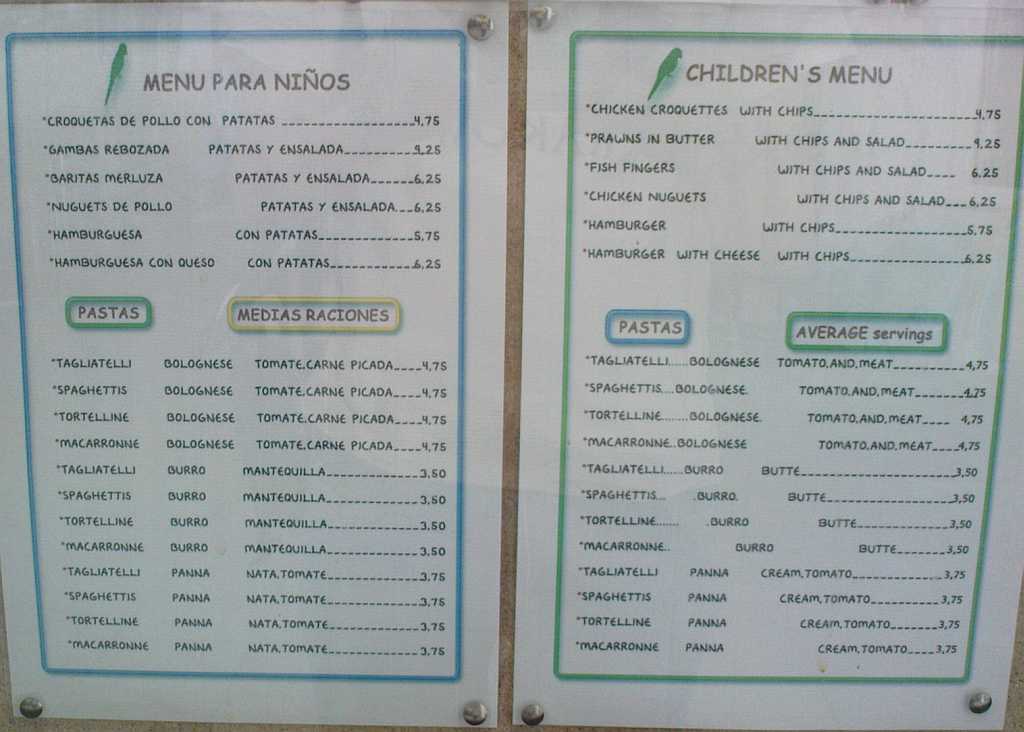 MENU PARA NIÑOS
*CROQUETAS DE POLLO CON PATATAS 4,75
*GAMBAS REBOZADA PATATAS Y ENSALADA 9,25
*BARITAS MERLUZA PATATAS Y ENSALADA 6,25
*NUGUETS DE POLLO PATATAS Y ENSALADA 6,25
*HAMBURGUESA CON PATATAS 5,75
*HAMBURGUESA CON QUESO CON PATATAS 6,25
PASTAS MEDIAS RACIONES
*TAGLIATELLI BOLOGNESE TOMATE,CARNE PICADA 4,75
*SPAGHETTIS BOLOGNESE TOMATE,CARNE PICADA 4,75
*TORTELLINE BOLOGNESE TOMATE,CARNE PICADA 4,75
*MACARRONNE BOLOGNESE TOMATE,CARNE PICADA 4,75
*TAGLIATELLI BURRO MANTEQUILLA 3,50
*SPAGHETTIS BURRO MANTEQUILLA 3,50
*TORTELLINE BURRO MANTEQUILLA 3,50
*MACARRONNE BURRO MANTEQUILLA 3,50
*TAGLIATELLI PANNA NATA,TOMATE 3,75
*SPAGHETTIS PANNA NATA,TOMATE 3,75
*TORTELLINE PANNA NATA,TOMATE 3,75
*MACARRONNE PANNA NATA,TOMATE 3,75
CHILDREN'S MENU
*CHICKEN CROQUETTES WITH CHIPS 4,75
*PRAWNS IN BUTTER WITH CHIPS AND SALAD 9,25
*FISH FINGERS WITH CHIPS AND SALAD 6,25
*CHICKEN NUGUETS WITH CHIPS AND SALAD 6,25
*HAMBURGER WITH CHIPS 5,75
*HAMBURGER WITH CHEESE WITH CHIPS 6,25
PASTAS AVERAGE servings
*TAGLIATELLI.....BOLOGNESE TOMATO,AND,MEAT 4,75
*SPAGHETTIS....BOLOGNESE. TOMATO,AND,MEAT 4,75
*TORTELLINE........BOLOGNESE. TOMATO,AND,MEAT 4,75
*MACARRONNE..BOLOGNESE TOMATO,AND,MEAT 4,75
*TAGLIATELLI......BURRO BUTTE 3,50
*SPAGHETTIS... .BURRO. BUTTE 3,50
*TORTELLINE....... .BURRO BUTTE 3,50
*MACARRONNE.. BURRO BUTTE 3,50
*TAGLIATELLI PANNA CREAM,TOMATO 3,75
*SPAGHETTIS PANNA CREAM,TOMATO 3,75
*TORTELLINE PANNA CREAM,TOMATO 3,75
*MACARRONNE PANNA CREAM,TOMATO 3,75